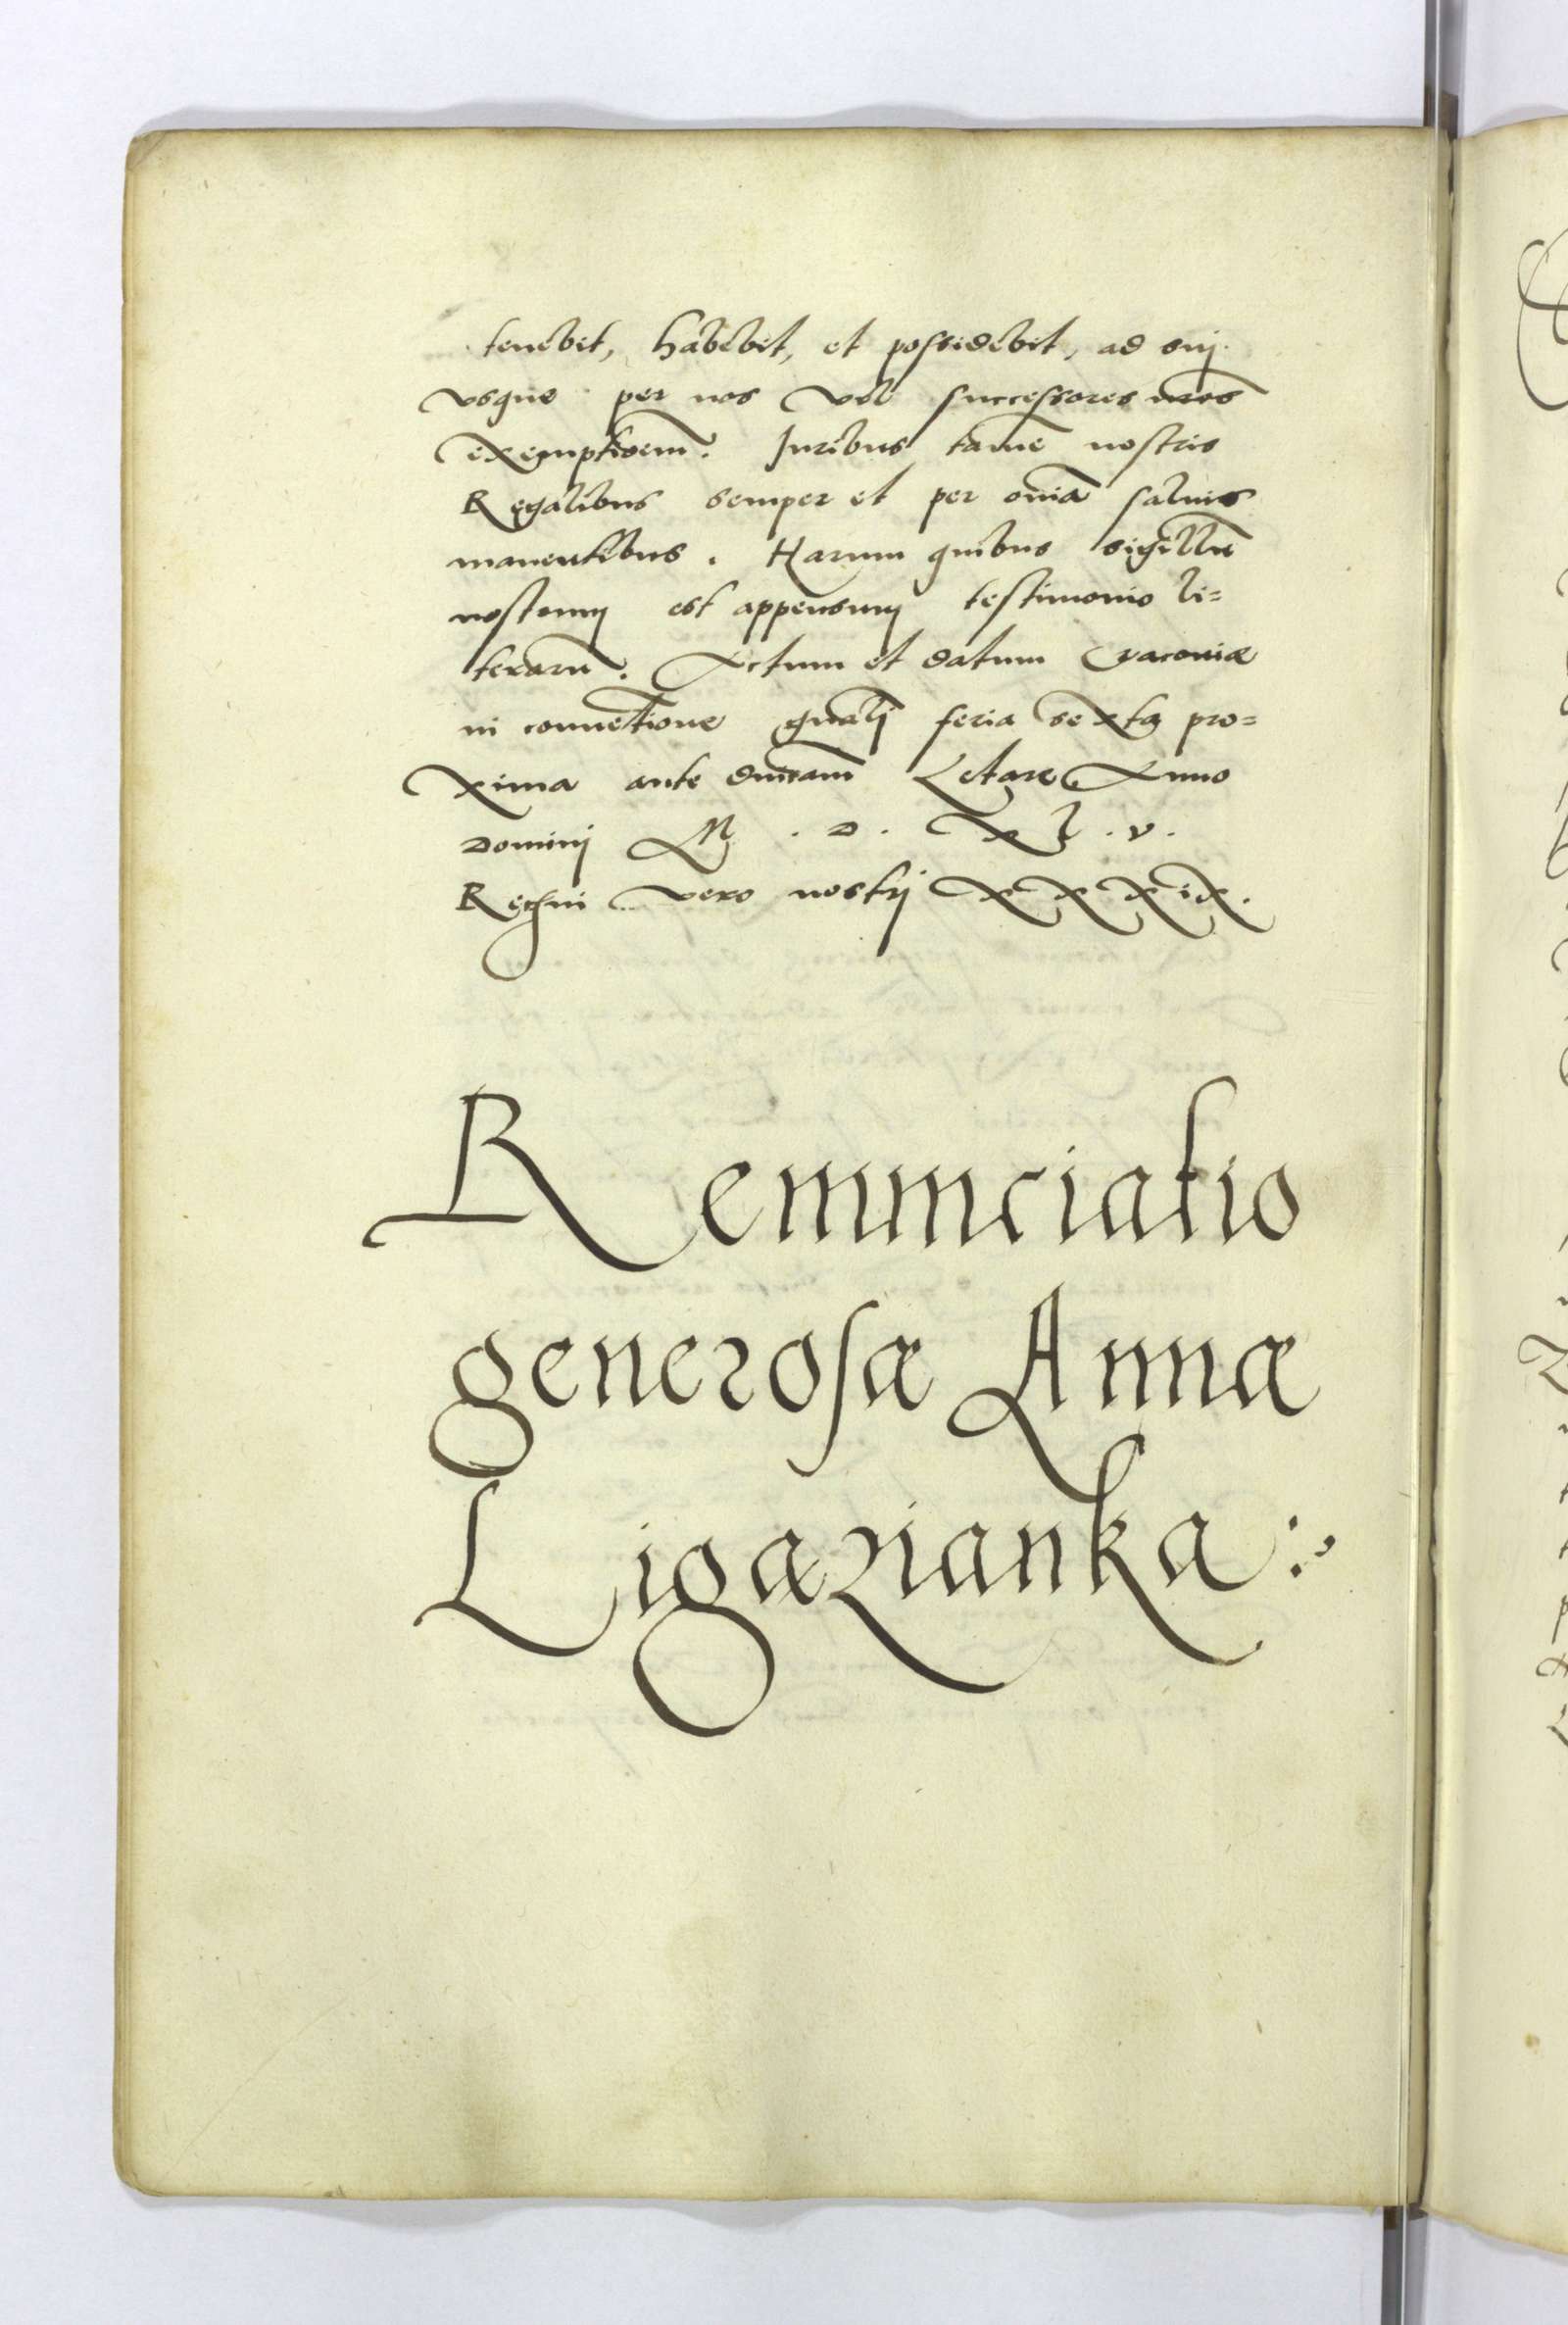 tenebit, habebit, et possidebit, ad sui
vsque per nos vel successores nr̃os
exemptioem̃. Juribus tamẽ nostris
Regalibus semper et per oĩa saluis
manentibus. Harum quibus sigillũ
nostrum est appensum testimonio li=
terarũ. Actum et datum Cracouiæ
in conuẽtione gñali feria sexta pro=
xima ante dñicam Letare, Anno
Domini M . D . X L . V .
Regni vero nostri XXXIX.
Renunciatio
generosæ Annæ
Ligæzianka